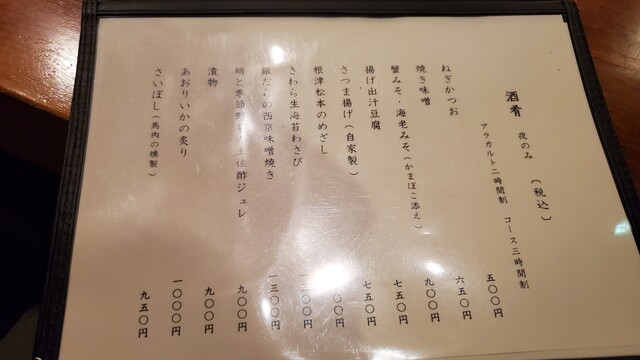 酒肴 夜のみ 〔税込〕
アラカルト二時間制 コース三時間制
ねぎかつお 五〇〇円
焼き味噌 六五〇円
蟹みそ・海老みそ(かまぼこ添え) 九〇〇円
揚げ出汁豆腐 七五〇円
さつま揚げ(自家製) 七五〇円
根津松本のめざし
さわら生海苔わさび
銀だらの西京味噌焼き 一三〇〇円
と季節 土佐酢ジュレ 九〇〇円
漬物 九〇〇円
あおりいかの炙り 一〇〇〇円
さいぼし(馬肉の燻製) 九五〇円